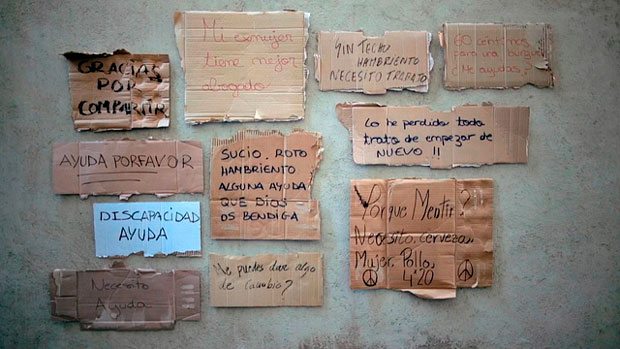 GRACIAS
POR
COMPARTIR
Mi exmujer
tiene mejor
abogado
SIN TECHO
HAMBRIENTO
NECESITO TRABAJO
60 centimos
para una burguer
¿Me ayudas?
Lo he perdido todo
trato de empezar de
NUEVO !!
AYUDA PORFAVOR
SUCIO. ROTO
HAMBRIENTO
ALGUNA AYUDA
QUE DIOS
OS BENDIGA
DISCAPACIDAD
AYUDA
¿Porque Mentir?
Necesito. cerveza.
Mujer. Pollo.
4:20
Necesito
Ayuda
Me puedes dar algo
de cambio?